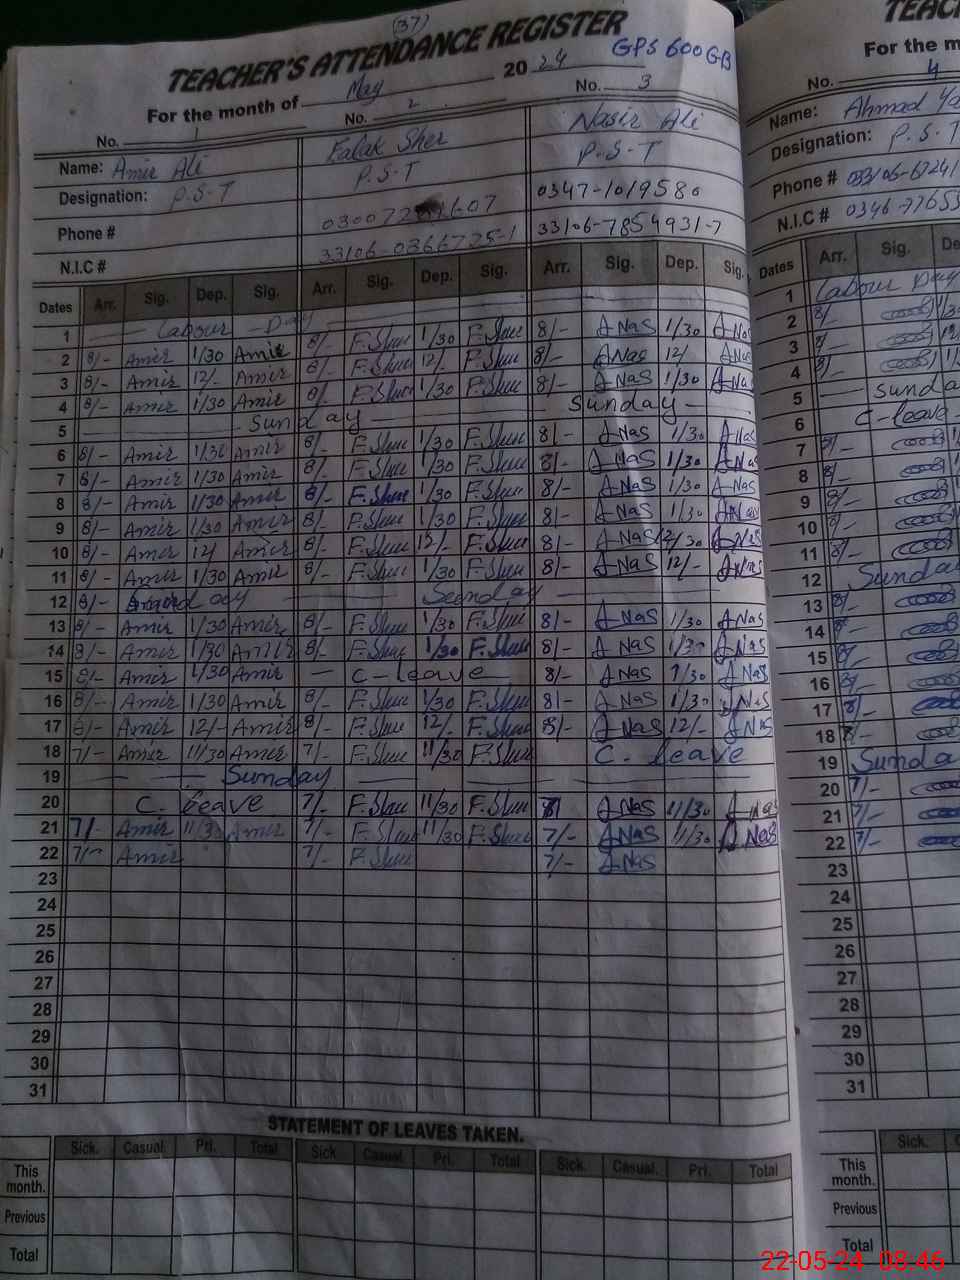 (37)
TEACHER'S ATTENDANCE REGISTER GPS 600 GB TEAC
For the month of May 2024 For the m
No. 1 No. 2 No. 3 No. 4
Name: Amir Ali Falak Sher Nasir Ali Name: Ahmad Ya
Designation: P.S.T P.S-T P.S-T Designation: P.S.T
Phone # 0347-1019580 Phone #
N.I.C # 33106-0366725-1 33106-7854931-7 N.I.C #
Dates Arr. Sig. Dep. Sig. Arr. Sig. Dep. Sig. Arr. Sig. Dep. Sig. Dates Arr. Sig. De
1 Labour Day 1 Labour Day
2 8/- Amir 1/30 Amir 8/- F.Sher 1/30 F.Sher 8/- A Nas 1/30 A Nas 2 8/-
3 8/- Amir 12/- Amir 8/- F.Sher 12/- F.Sher 8/- A Nas 12/ A Nas 3 8/-
4 8/- Amir 1/30 Amir 8/- F.Sher 1/30 F.Sher 8/- A Nas 1/30 A Nas 4 8/-
5 Sunday Sunday 5 Sunda
6 8/- Amir 1/30 Amir 8/- F.Sher 1/30 F.Sher 8/- A Nas 1/30 A Nas 6 C-leave
7 8/- Amir 1/30 Amir 8/- F.Sher 1/30 F.Sher 8/- A Nas 1/30 A Nas 7 8/-
8 8/- Amir 1/30 Amir 8/- F.Sher 1/30 F.Sher 8/- A Nas 1/30 A Nas 8 8/-
9 8/- Amir 1/30 Amir 8/- F.Sher 1/30 F.Sher 8/- A Nas 1/30 A Nas 9 8/-
10 8/- Amir 12/ Amir 8/- F.Sher 12/- F.Sher 8/- A Nas A Nas 10 8/-
11 8/- Amir 1/30 Amir 8/- F.Sher 1/30 F.Sher 8/- A Nas 12/- A Nas 11 8/-
12 8/- Sunday 12 Sunda
13 8/- Amir 1/30 Amir 8/- F.Sher 1/30 F.Sher 8/- A Nas 1/30 A Nas 13 8/-
14 8/- Amir 1/30 Amir 8/- F.Sher 1/30 F.Sher 8/- A Nas 1/30 A Nas 14 8/-
15 8/- Amir 1/30 Amir C-leave 8/- A Nas 1/30 A Nas 15 8/-
16 8/- Amir 1/30 Amir 8/- F.Sher 1/30 F.Sher 8/- A Nas 1/30 A Nas 16 8/-
17 8/- Amir 12/- Amir 8/- F.Sher 12/- F.Sher 8/- A Nas 12/- A Nas 17 8/-
18 7/- Amir 11/30 Amir 7/- F.Sher 11/30 F.Sher C. leave 18
19 Sunday 19 Sunda
20 C. leave 7/- F.Sher 11/30 F.Sher A Nas 11/30 A Nas 20 7/-
21 7/- Amir 11/30 Amir 7/- F.Sher 11/30 F.Sher 7/- A Nas 11/30 A Nas 21 7/-
22 7/- Amir 7/- F.Sher 7/- A Nas 22 7/-
23 23
24 24
25 25
26 26
27 27
28 28
29 29
30 30
31 31
STATEMENT OF LEAVES TAKEN.
Sick. Casual Pri. Total Sick Casual Pri. Total Sick Casual. Pri. Total Sick. C
This month. This month.
Previous Previous
Total Total
22-05-24 08:46